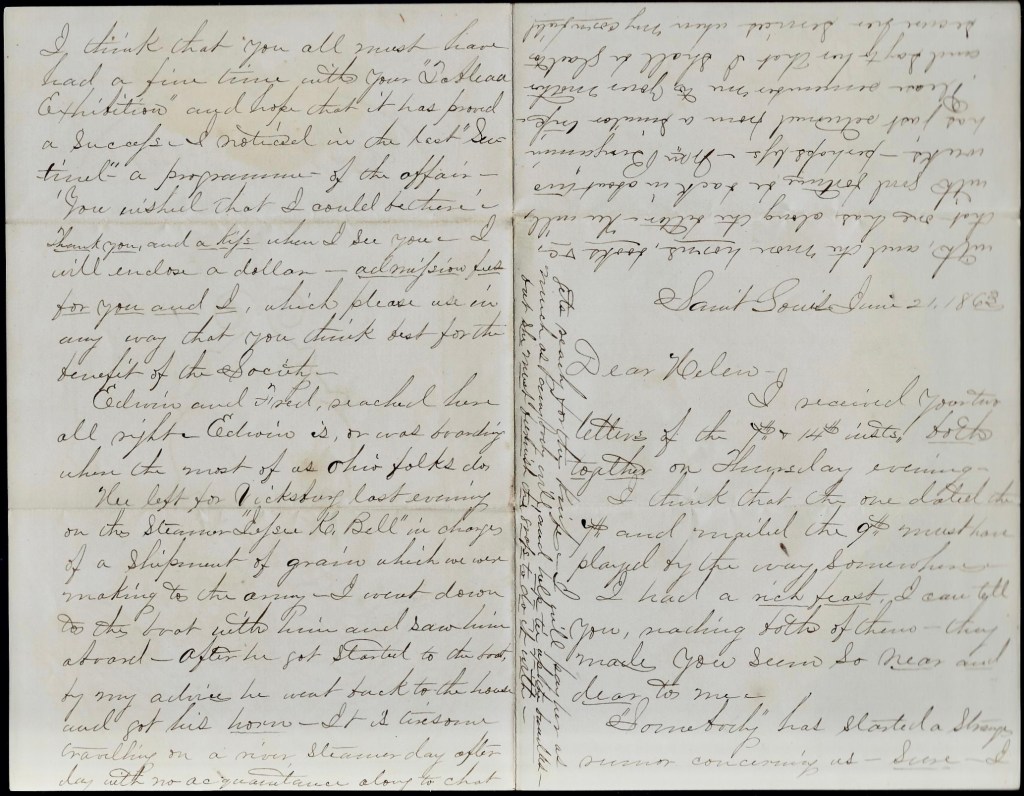 Saint Louis June 21, 1863
Dear Helen -
I received your two
letters of the 7th & 14th insts, both
together on Thursday evening -
I think that the one dated the
7th and mailed the 9th must have
played by the way, Somewhere -
I had a rich feast, I can tell
You, reading both of them - they
made You seem so near and
dear to me -
"Somebody" has started a Strange
rumor concerning us - Sure - I
I think that you all must have
had a fine time with your "Tableau
Exhibition" and hope that it has proved
a Success - I noticed in the last "Sen-
tinel" - a programme of the affair -
You wished that I could be there -
Thank you, and a Kiss when I see you - I
will enclose a dollar - admission fees
for you and I, which please use in
any way that you think best for the
benefit of the Society -
Edwin and Fred, reached here
all right - Edwin is, or was boarding
where the most of us Ohio folks do
He left for Vicksburg last evening
on the Steamer "Jesse K. Bell" in charge
of a Shipment of grain which we were
making to the army - I went down
to the boat with him and saw him
aboard - after he got Started to the boat,
by my advice he went back to the house
and got his horn - It is tiresome
travelling on a river Steamer day after
day with no acquaintance along to chat
with, and the more horns, books &c.
that one has along the better - He will,
with good fortune be back in about two
weeks - perhaps less - Mr Benjamin
has just returned from a similar trip -
Please remember me to Your Mother
and say to her that I shall be glad to
secure her services when my cornfield
gets ready for the knife - I will pay her as
much as I can and help to
but she must furnish the rope to do it with -